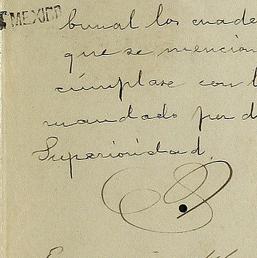 MEXICO
bunal los cuade
que se mencion
cúmplase con l
mandado por d
Superioridad.